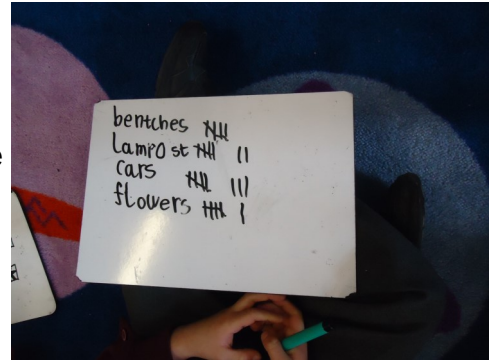 bentches 卌
Lampost 卌 ||
cars 卌 |||
flowers 卌 |